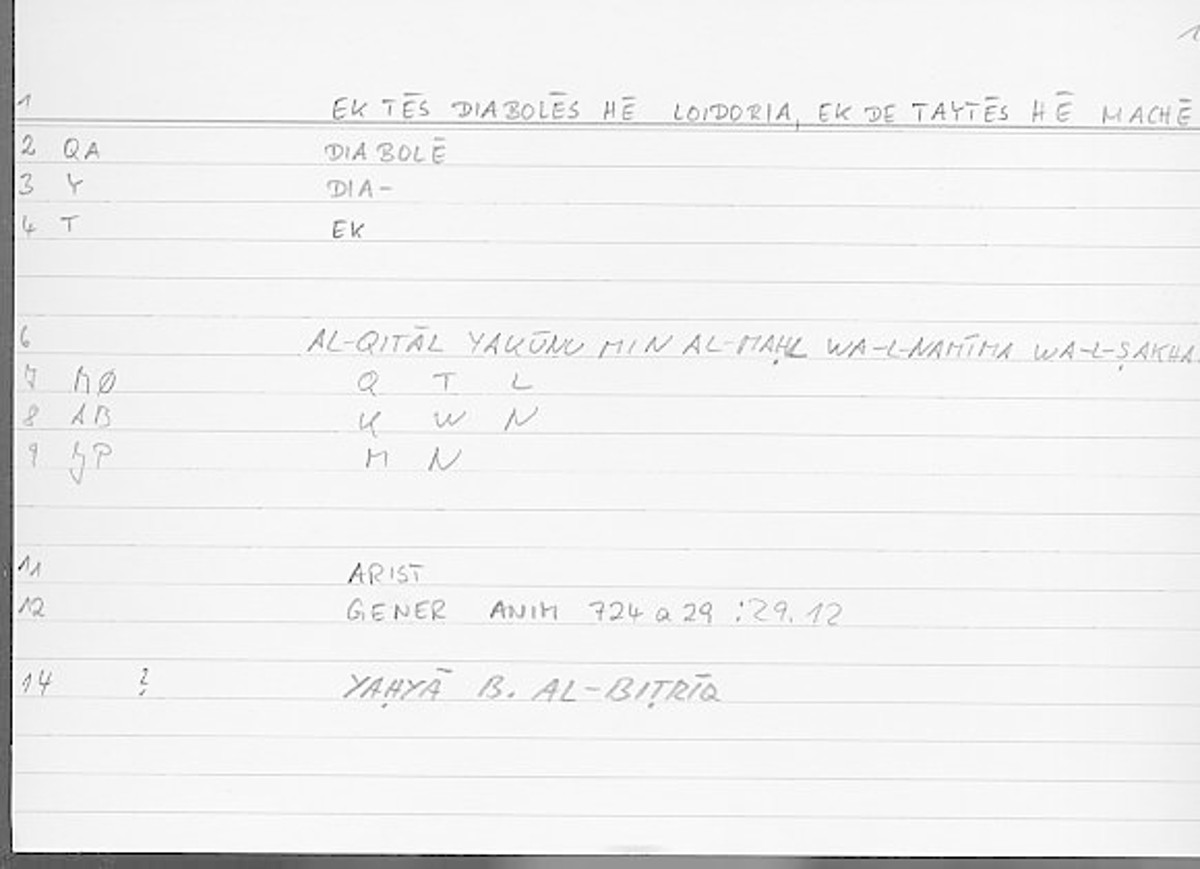 1
1 EK TĒS DIABOLĒS HĒ LOIDORIA, EK DE TAYTĒS HĒ MACHĒ
2 QA DIABOLĒ
3 Y DIA-
4 T EK
6 AL-QITĀL YAKŪNU MIN AL-MAḤL WA-L-NAMĪMA WA-L-ṢAKHA
7 MØ Q T L
8 AB K W N
9 M N
11 ARIST
12 GENER ANIM 724 a 29 :29.12
14 ? YAḤYĀ B. AL-BIṬRĪQ